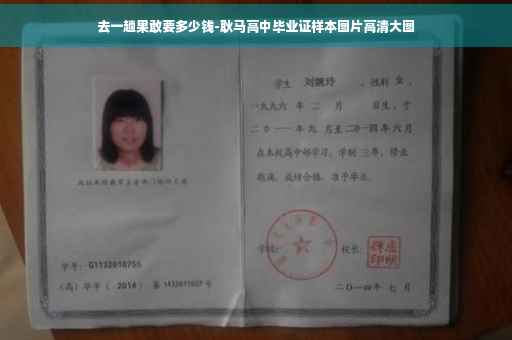 去一趟果敢要多少钱-耿马高中毕业证样本图片高清大图
学生 刘婉玲 ，性别 女 ，
一九九六 年 二 月 日生，于
二〇一一年九 月至二〇一四年六月
在本校高中部学习，学制 三年，修业
期满，成绩合格，准予毕业。
学校： 校长：
学号： G1132010755
（高）毕字（ 2014 ）第 1432011027 号
二〇一四年 七 月